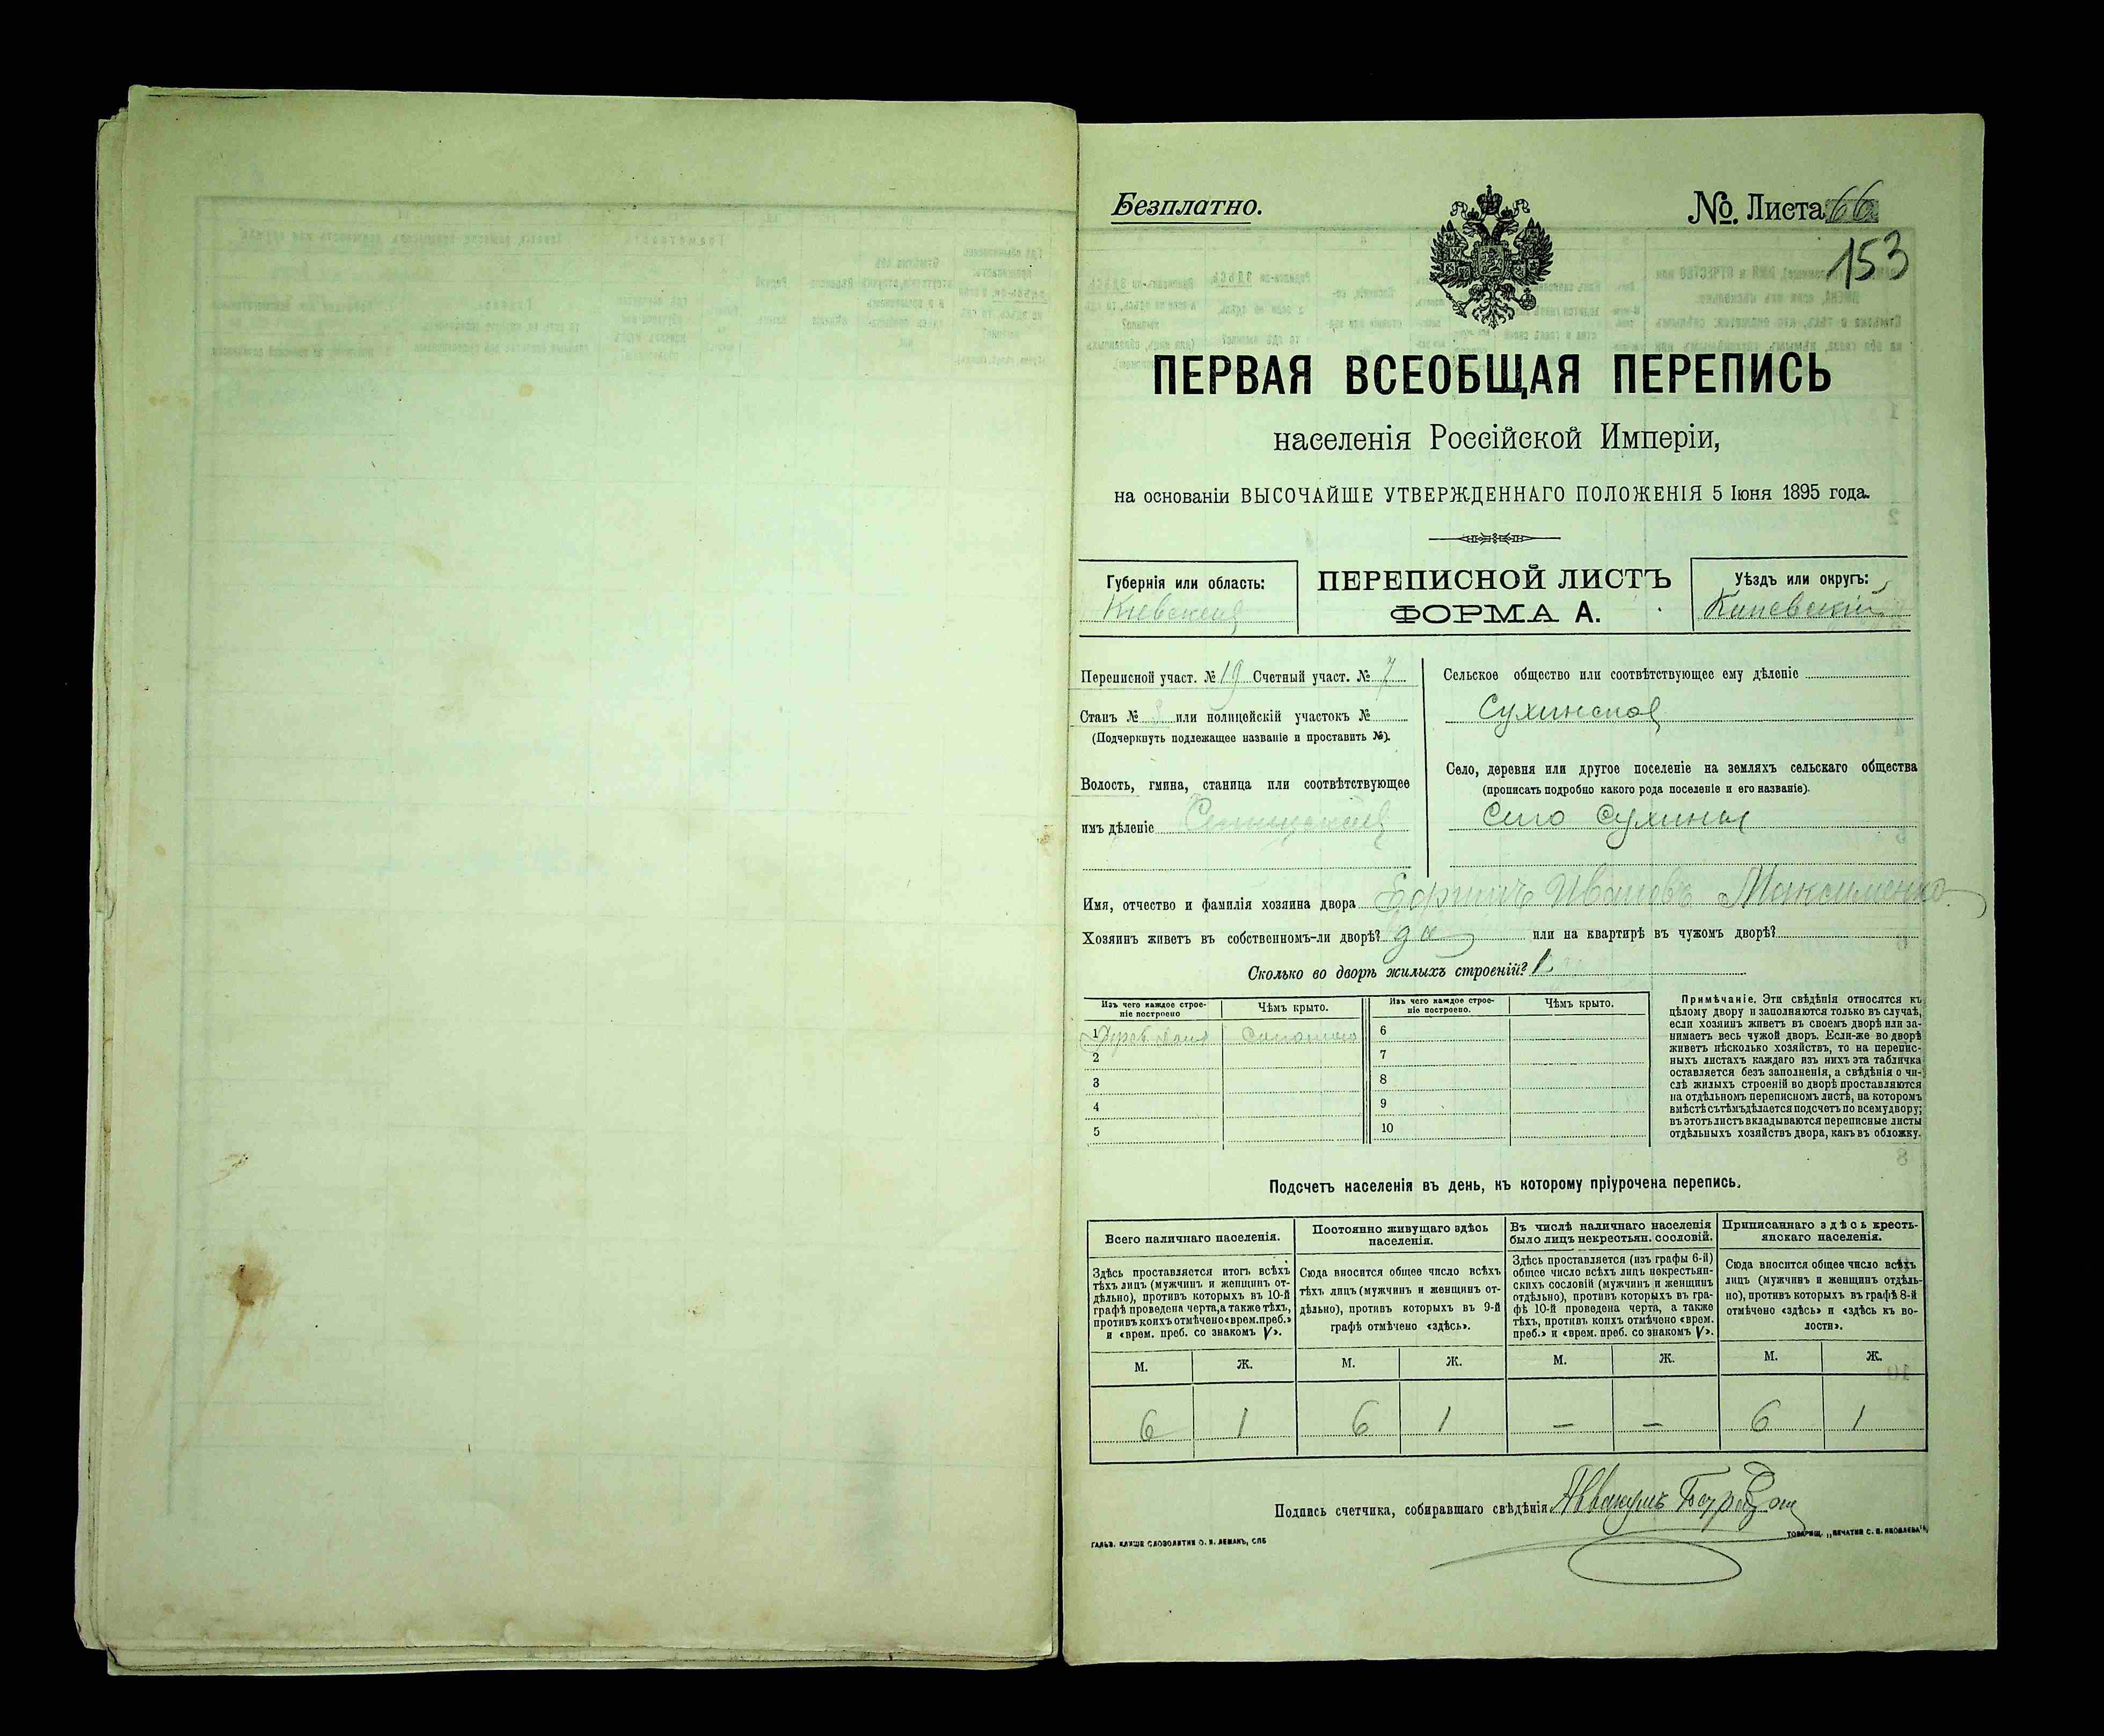 Безплатно.
№ Листа 66
153
ПЕРВАЯ ВСЕОБЩАЯ ПЕРЕПИСЬ
населенія Россійской Имперіи,
на основаніи ВЫСОЧАЙШЕ УТВЕРЖДЕННАГО ПОЛОЖЕНІЯ 5 Іюня 1895 года.
Губернія или область:
Кіевская
ПЕРЕПИСНОЙ ЛИСТЪ
ФОРМА А.
Уѣздъ или округъ:
Каневскій
Переписной участ. № 19 Счетный участ. № 7
Станъ № или полицейскій участокъ №
(Подчеркнуть подлежащее названіе и проставить №).
Волость, гмина, станица или соотвѣтствующее
имъ дѣленіе
Сельское общество или соотвѣтствующее ему дѣленіе
Сухинское
Село, деревня или другое поселеніе на земляхъ сельскаго общества
(прописать подробно какого рода поселеніе и его названіе).
Село Сухины
Имя, отчество и фамилія хозяина двора Ивановъ Максименко
Хозяинъ живетъ въ собственномъ-ли дворѣ? да или на квартирѣ въ чужомъ дворѣ?
Сколько во дворѣ жилыхъ строеній? 1
Изъ чего каждое строе-
ніе построено
Чѣмъ крыто.
Изъ чего каждое строе-
ніе построено.
Чѣмъ крыто.
1 Соломою
2
3
4
5
6
7
8
9
10
Примѣчаніе. Эти свѣдѣнія относятся къ
цѣлому двору и заполняются только въ случаѣ,
если хозяинъ живетъ въ своемъ дворѣ или за-
нимаетъ весь чужой дворъ. Если-же во дворѣ
живетъ нѣсколько хозяйствъ, то на перепис-
ныхъ листахъ каждаго изъ нихъ эта табличка
оставляется безъ заполненія, а свѣдѣнія о чи-
слѣ жилыхъ строеній во дворѣ проставляются
на отдѣльномъ переписномъ листѣ, на которомъ
вмѣстѣ съ тѣмъ дѣлается подсчетъ по всему двору;
въ этотъ листъ вкладываются переписные листы
отдѣльныхъ хозяйствъ двора, какъ въ обложку.
Подсчетъ населенія въ день, къ которому пріурочена перепись.
Всего наличнаго населенія.
Здѣсь проставляется итогъ всѣхъ
тѣхъ лицъ (мужчинъ и женщинъ от-
дѣльно), противъ которыхъ въ 10-й
графѣ проведена черта, а также тѣхъ,
противъ коихъ отмѣчено «врем. преб.»
и «врем. преб. со знакомъ V».
Постоянно живущаго здѣсь
населенія.
Сюда вносится общее число всѣхъ
тѣхъ лицъ (мужчинъ и женщинъ от-
дѣльно), противъ которыхъ въ 9-й
графѣ отмѣчено «здѣсь».
Въ числѣ наличнаго населенія
было лицъ некрестьян. сословій.
Здѣсь проставляется (изъ графы 6-й)
общее число всѣхъ лицъ некрестьян-
скихъ сословій (мужчинъ и женщинъ
отдѣльно), противъ которыхъ въ гра-
фѣ 10-й проведена черта, а также
тѣхъ, противъ коихъ отмѣчено «врем.
преб.» и «врем. преб. со знакомъ V».
Приписаннаго здѣсь кресть-
янскаго населенія.
Сюда вносится общее число всѣхъ
лицъ (мужчинъ и женщинъ отдѣль-
но), противъ которыхъ въ графѣ 8-й
отмѣчено «здѣсь» и «здѣсь къ во-
лости».
М. Ж. М. Ж. М. Ж. М. Ж.
6 1 6 1 – – 6 1
Подпись счетчика, собиравшаго свѣдѣнія Аввакумъ
ГАЛЬВ. КЛИШЕ СЛОВОЛИТНИ О. И. ЛЕМАНЪ, СПБ
ТОВАРИЩ. „ПЕЧАТНЯ С. П. ЯКОВЛЕВА".